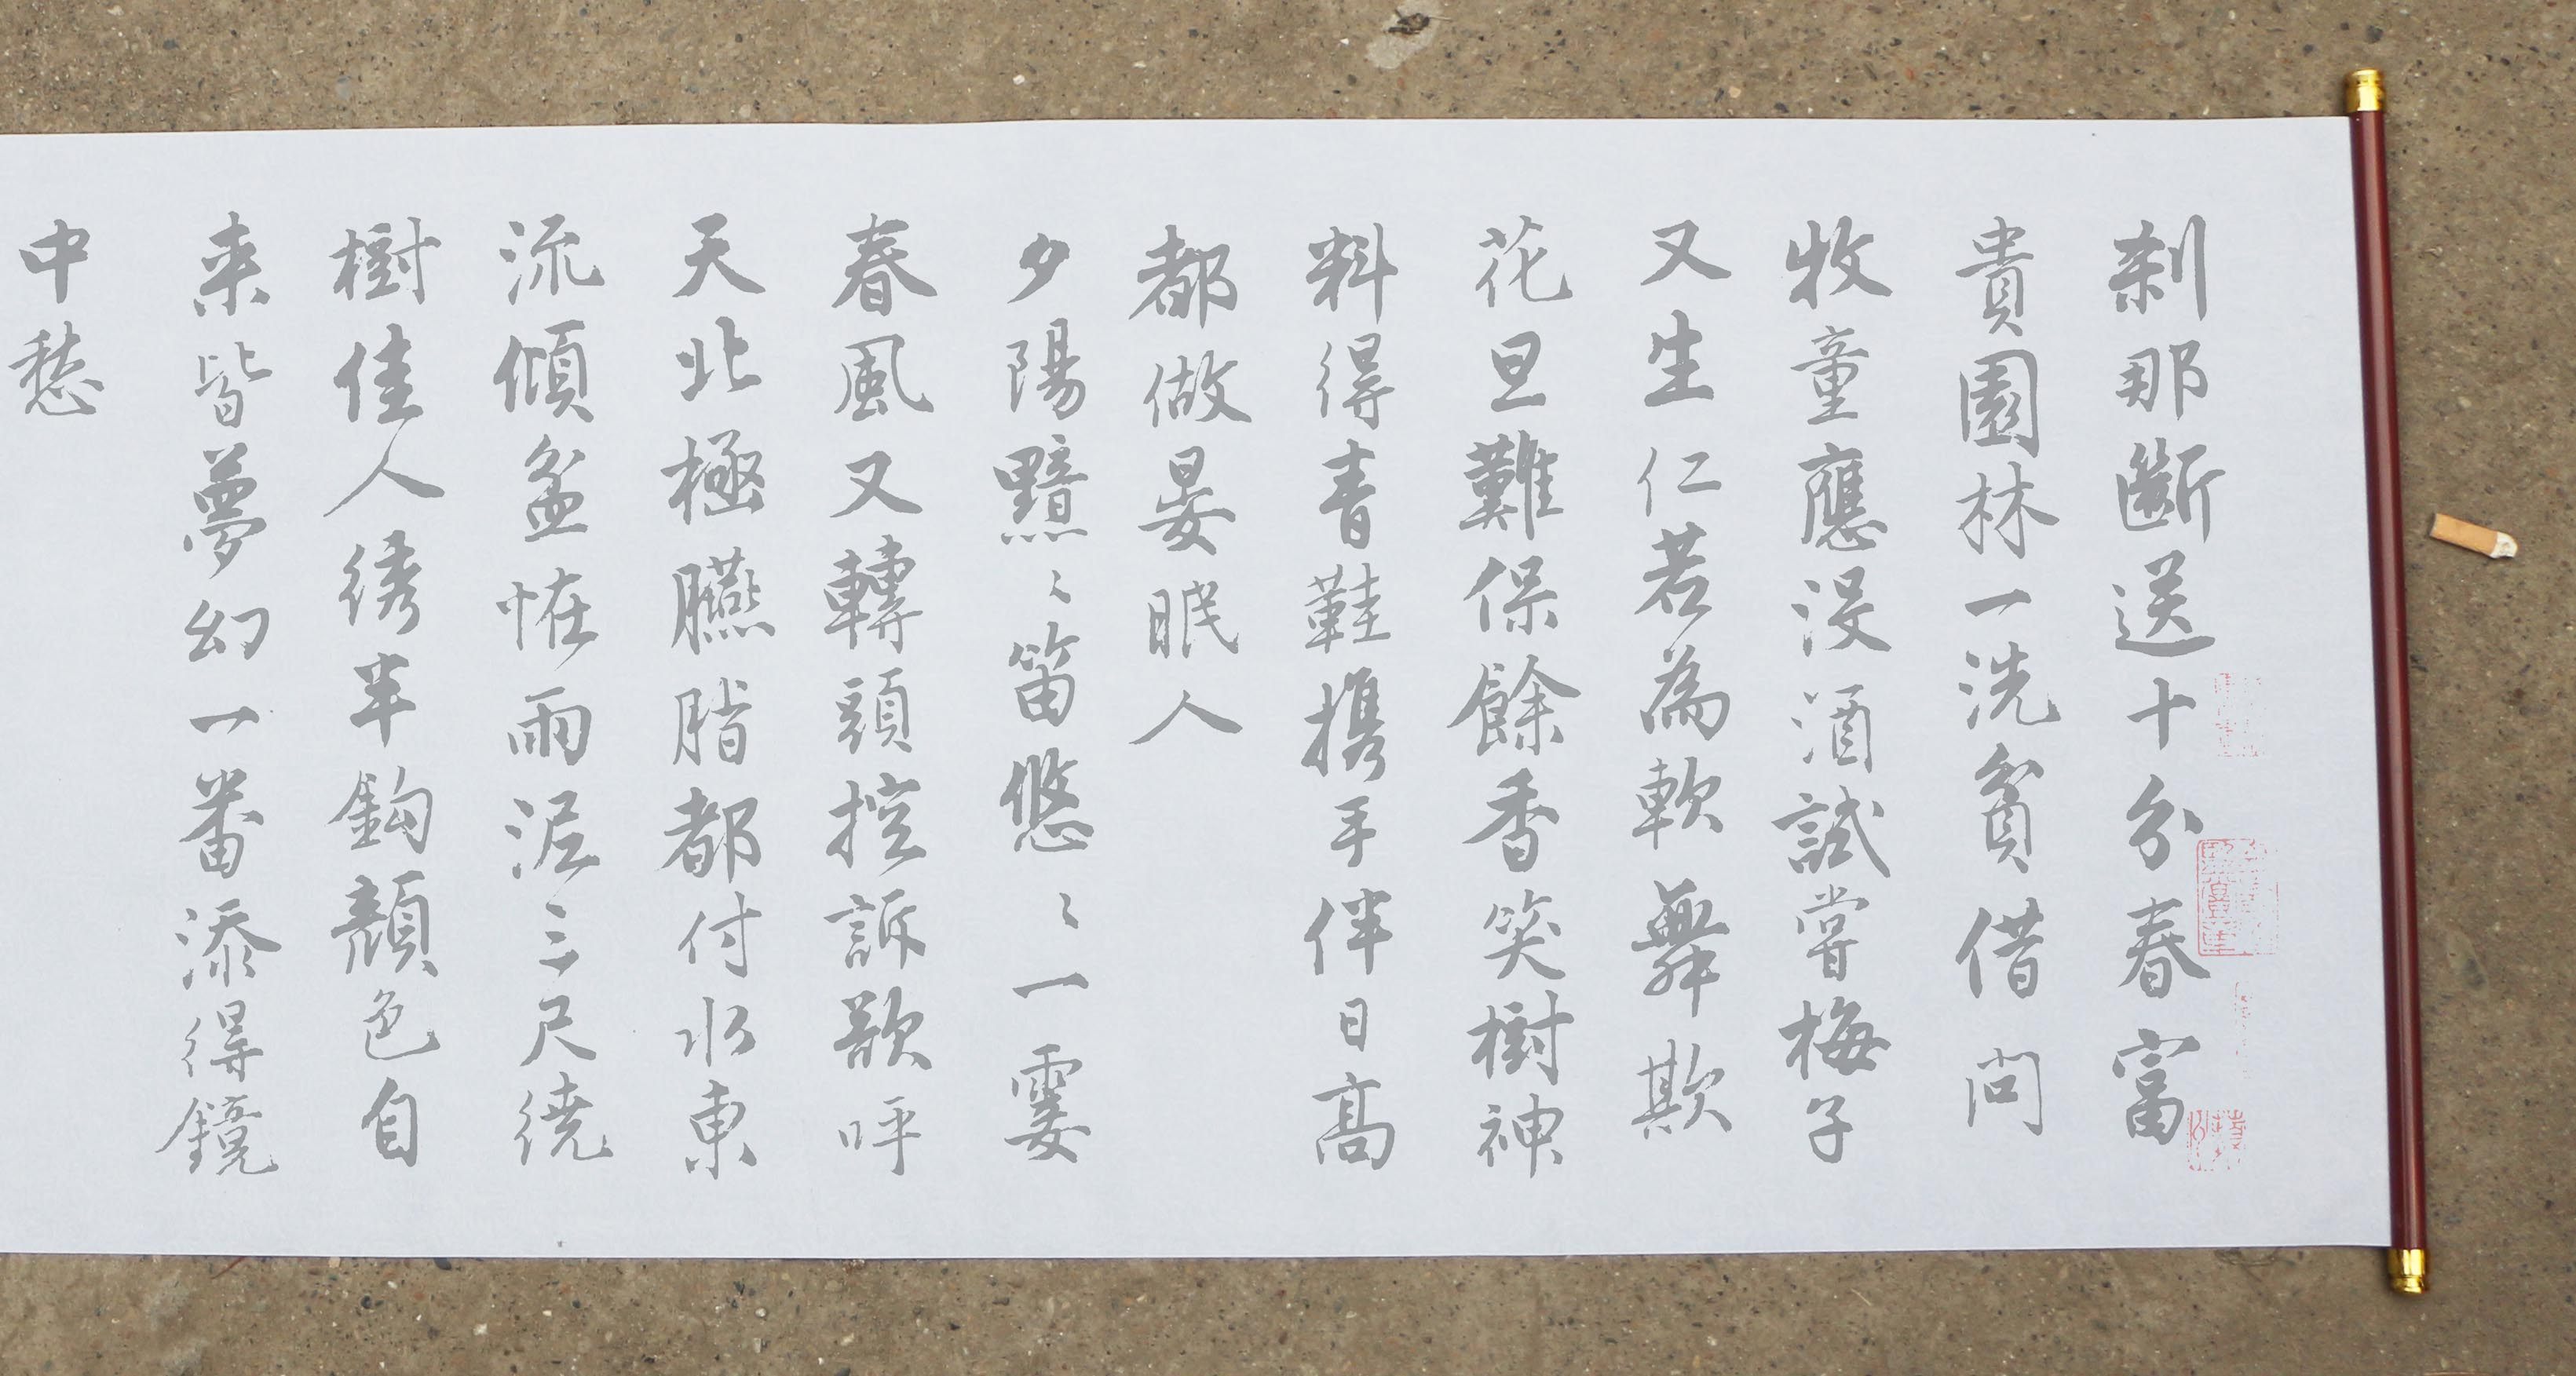 刹那斷送十分春富
貴園林一洗貧借問
牧童應没酒試嘗梅子
又生仁若為軟舞欺
花旦難保餘香笑樹神
料得青鞋携手伴日高
都做晏眠人
夕陽黯〻笛悠〻一霎
春風又轉頭控訴欲呼
天北極臙脂都付水東
流傾盆恠雨泥三尺繞
樹佳人绣半鈎顏色自
来皆夢幻一番添得鏡
中愁